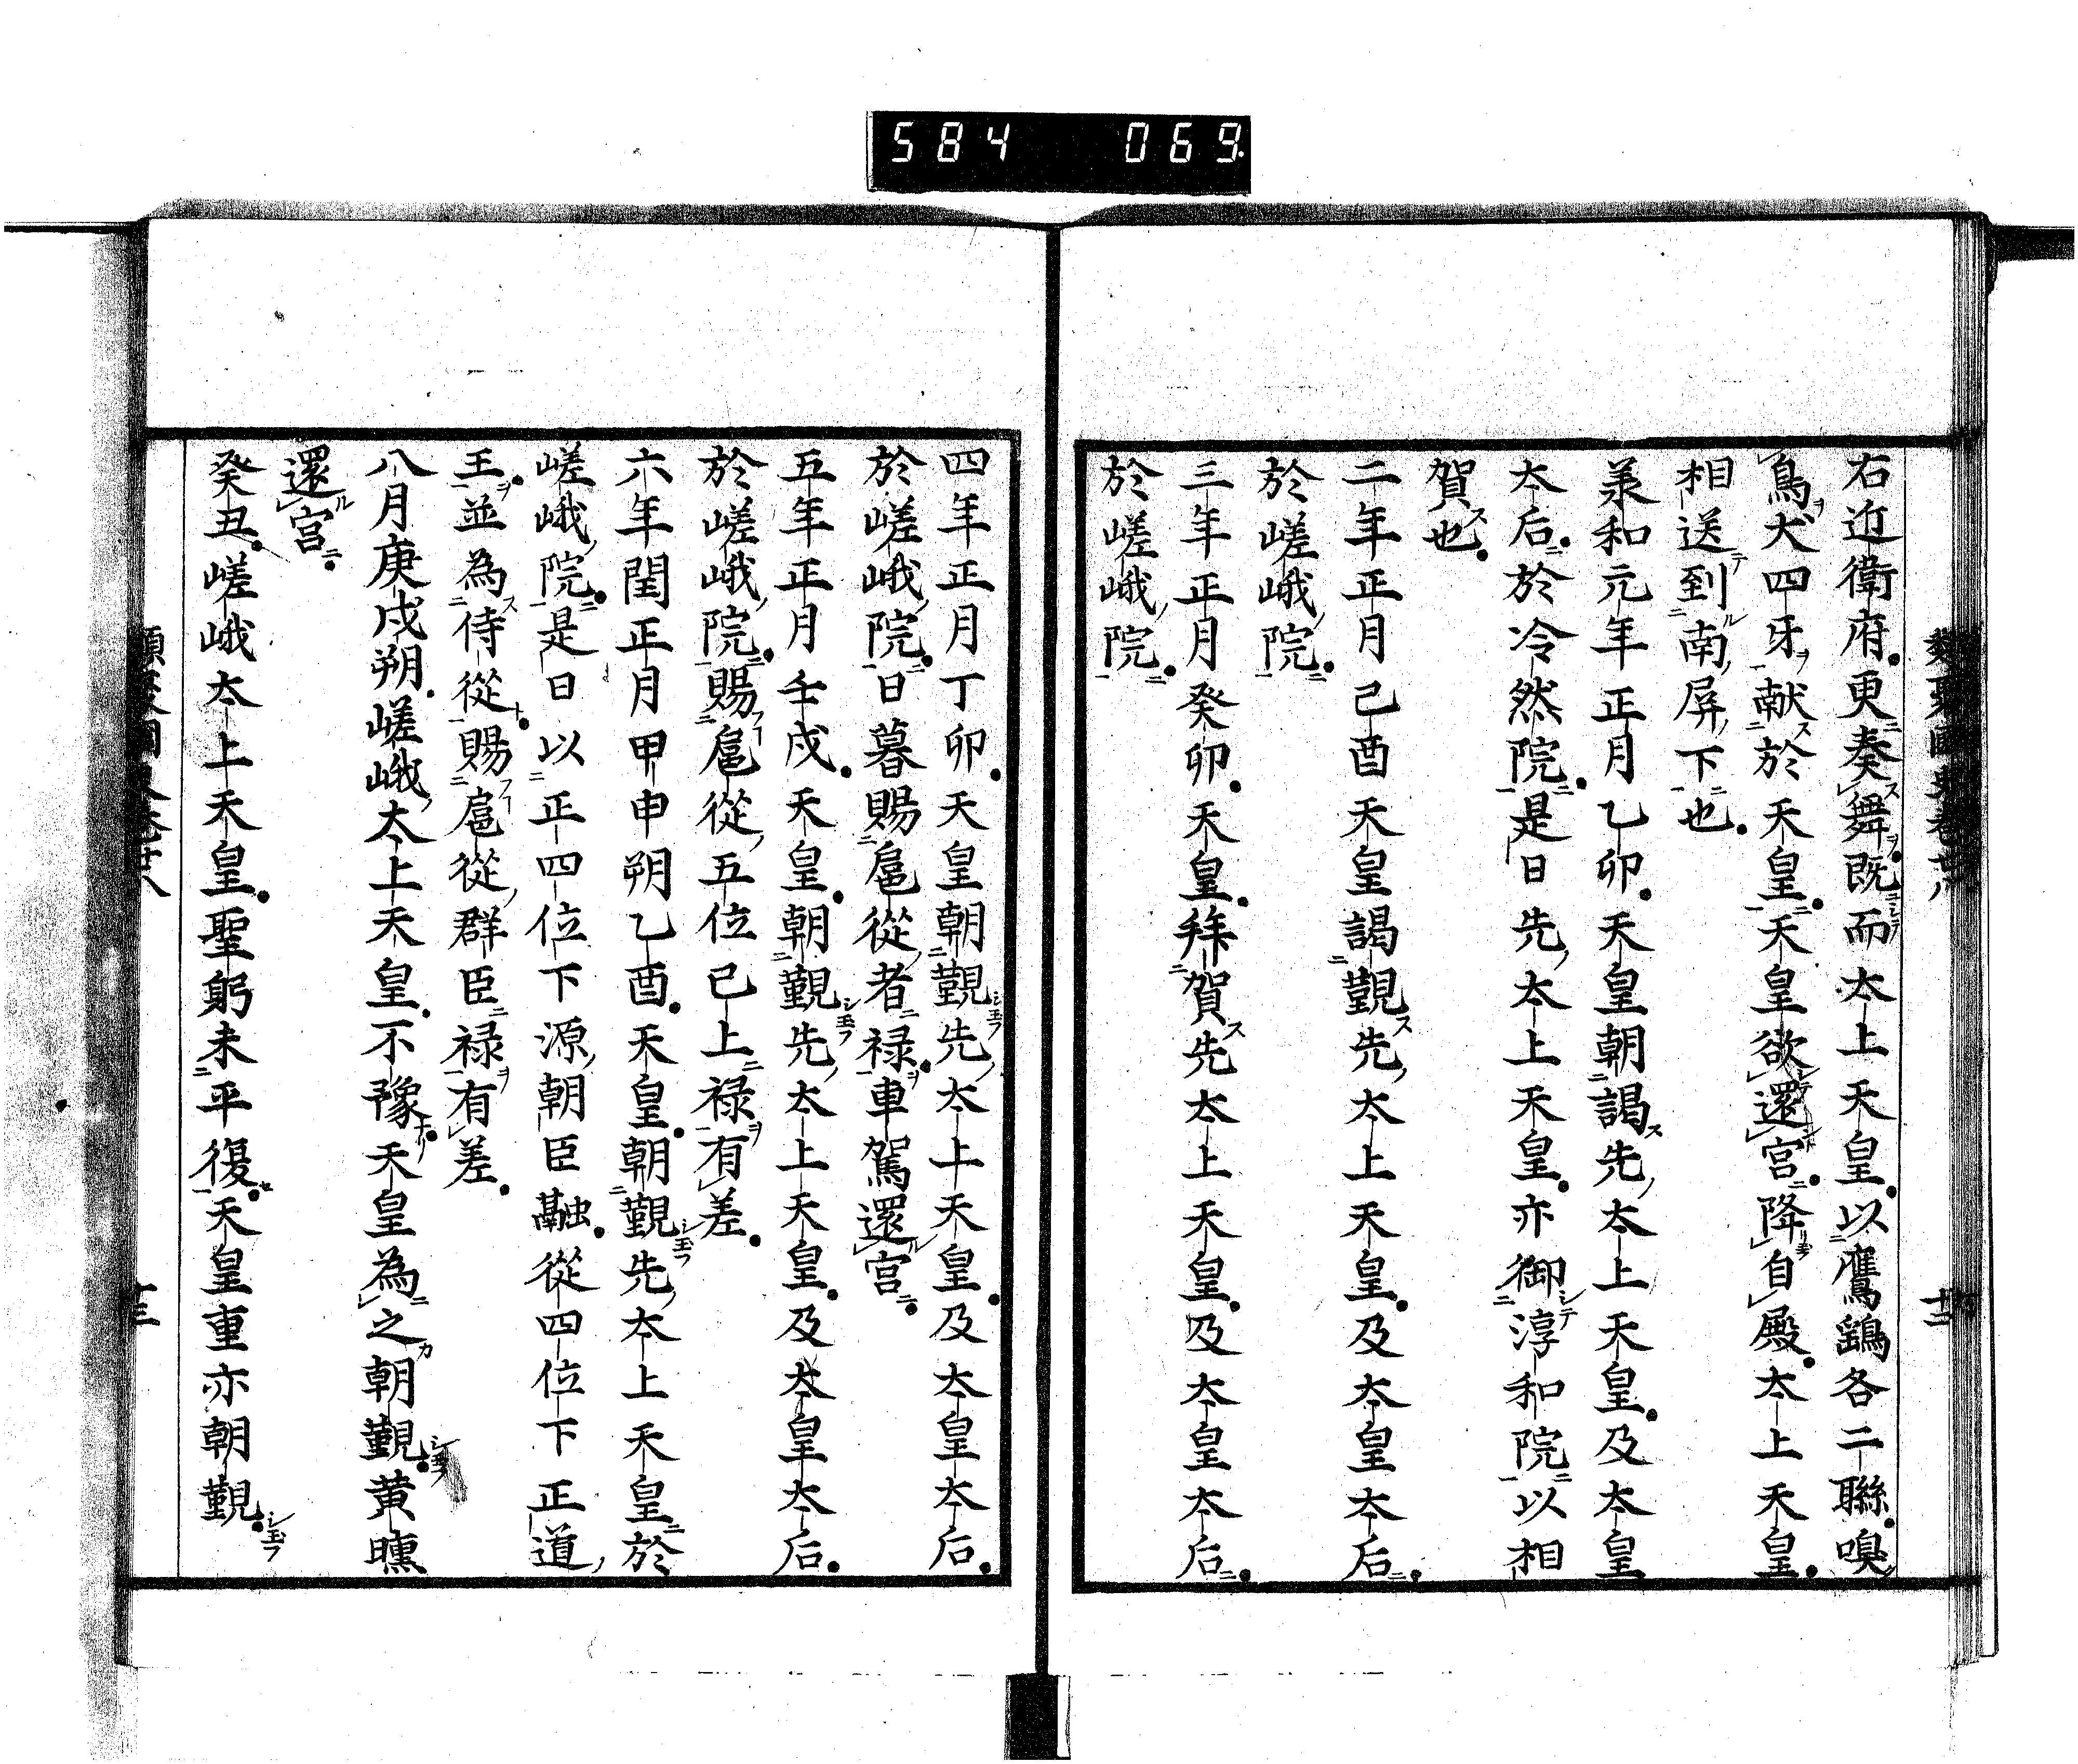 584 069
類聚國史卷廿八
十二
右近衛府更奏舞既而太上天皇以鷹鷂各二聯嗅
鳥犬四牙献於天皇天皇欲還宮降自殿太上天皇
相送到南屏下也
羕和元年正月乙卯天皇朝謁先太上天皇及太皇
太后於冷然院是日先太上天皇亦御淳和院以相
賀也
二年正月己酉天皇謁覲先太上天皇及太皇太后
於嵯峨院
三年正月癸卯天皇拜賀先太上天皇及太皇太后
於嵯峨院
四年正月丁卯天皇朝覲先太上天皇及太皇太后
於嵯峨院日暮賜扈從者禄車駕還宮
五年正月壬戌天皇朝覲先太上天皇及太皇太后
於嵯峨院賜扈從五位已上禄有差
六年閏正月甲申朔乙酉天皇朝覲先太上天皇於
嵯峨院是日以正四位下源朝臣融從四位下正道
王並為侍從賜扈從群臣禄有差
八月庚戌朔嵯峨太上天皇不豫天皇為之朝覲黄曛
還宮
癸丑嵯峨太上天皇聖躬未平復天皇重亦朝覲
類聚國史卷廿八
十三